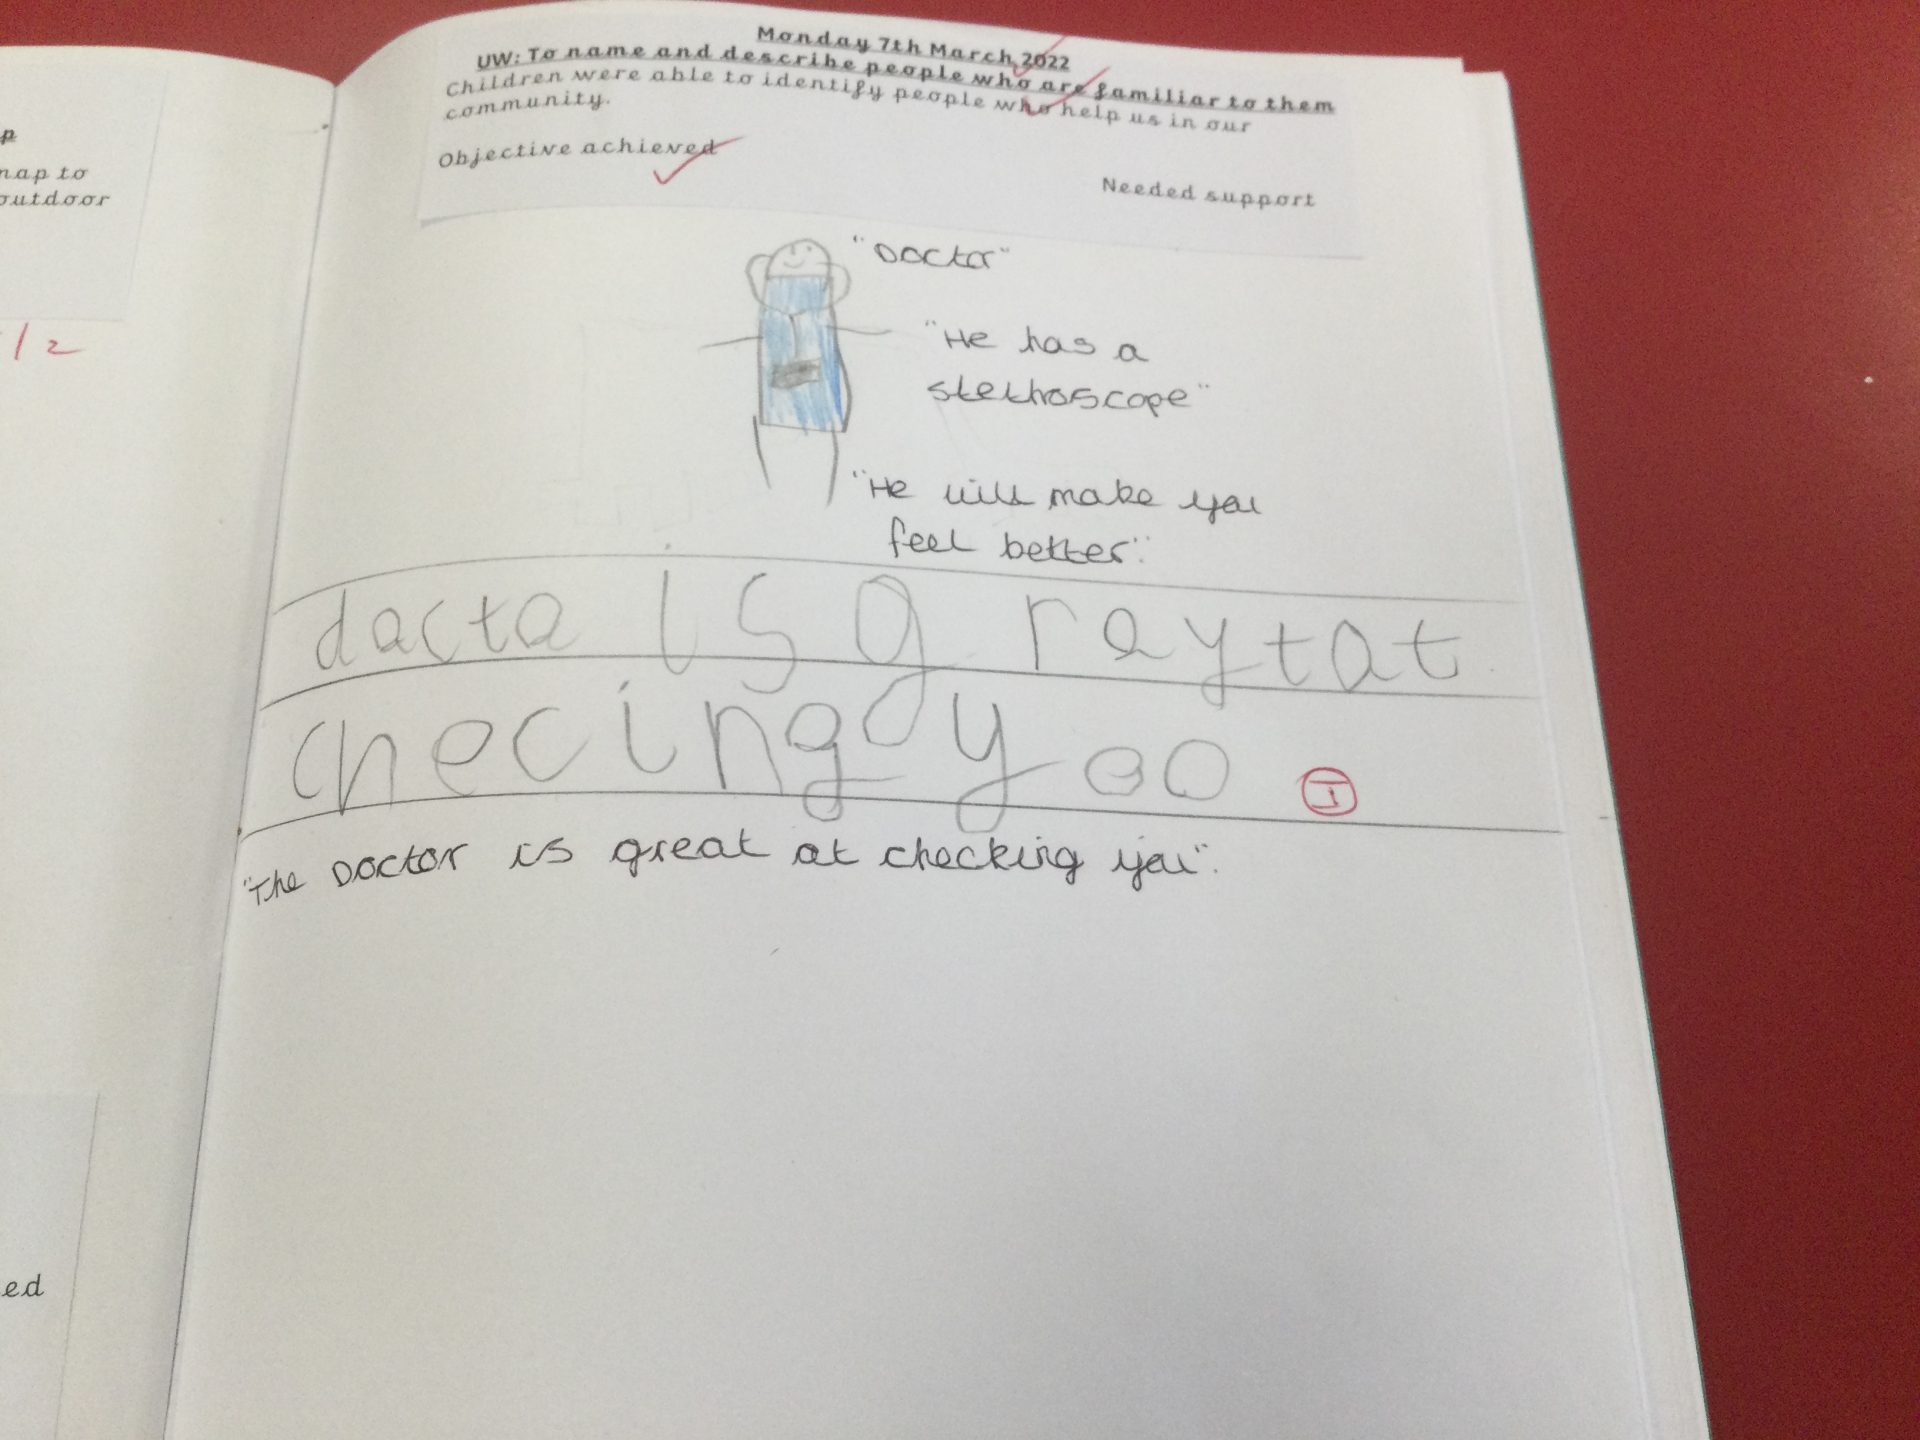 p
map to
outdoor
1/2
ed
Monday 7th March 2022
UW: To name and describe people who are familiar to them
Children were able to identify people who help us in our
community.
Objective achieved
Needed support
"Doctor"
"He has a
stethoscope"
"He will make you
feel better".
dacta is g raytat
checing yoo
I
"The Doctor is great at checking you".